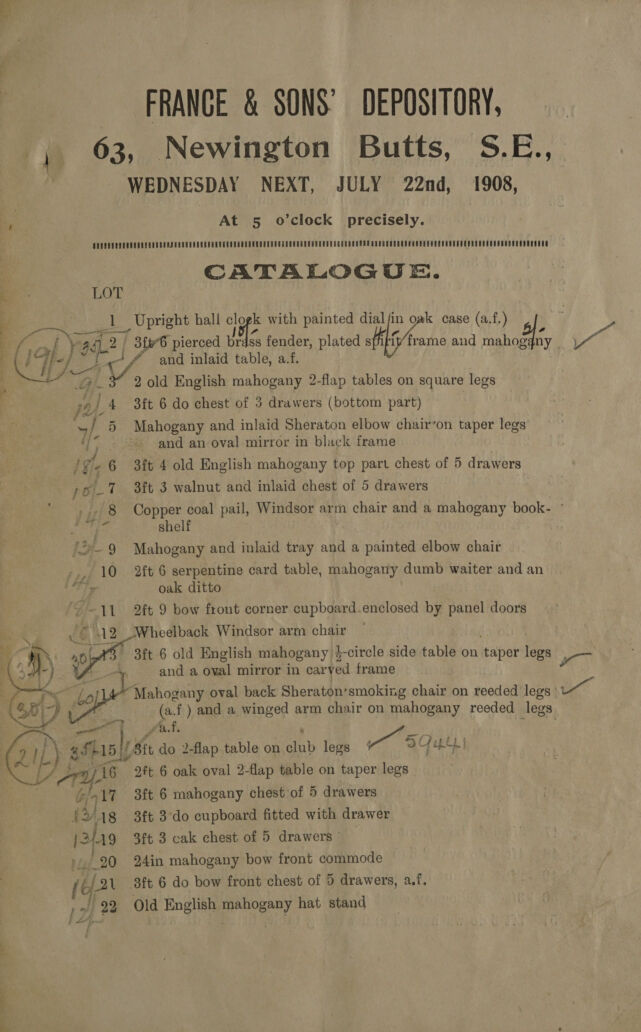 FRANCE & SONS' DEPOSITORY,
63, Newington Butts, S.E.,
WEDNESDAY NEXT, JULY 22nd, 1908,
At 5 o'clock precisely.
CATALOGUE.
LOT
1 Upright hall clock with painted dial in oak case (a.f.)
2 3ft 6 pierced brass fender, plated frame and mahogany
and inlaid table, a.f.
3 2 old English mahogany 2-flap tables on square legs
4 3ft 6 do chest of 3 drawers (bottom part)
5 Mahogany and inlaid Sheraton elbow chair on taper legs
and an oval mirror in black frame
6 3ft 4 old English mahogany top part chest of 5 drawers
7 3ft 3 walnut and inlaid chest of 5 drawers
8 Copper coal pail, Windsor arm chair and a mahogany book-
shelf
9 Mahogany and inlaid tray and a painted elbow chair
10 2ft 6 serpentine card table, mahogany dumb waiter and an
oak ditto
11 2ft 9 bow front corner cupboard enclosed by panel doors
12 Wheelback Windsor arm chair
13 3ft 6 old English mahogany ½-circle side table on taper legs
and a oval mirror in carved frame
14 Mahogany oval back Sheraton smoking chair on reeded legs
(a.f ) and a winged arm chair on mahogany reeded legs
a.f.
21/- 15 3ft do 2-flap table on club legs
16 2ft 6 oak oval 2-flap table on taper legs
17 3ft 6 mahogany chest of 5 drawers
18 3ft 3 do cupboard fitted with drawer
19 3ft 3 oak chest of 5 drawers
20 24in mahogany bow front commode
21 3ft 6 do bow front chest of 5 drawers, a.f.
22 Old English mahogany hat stand